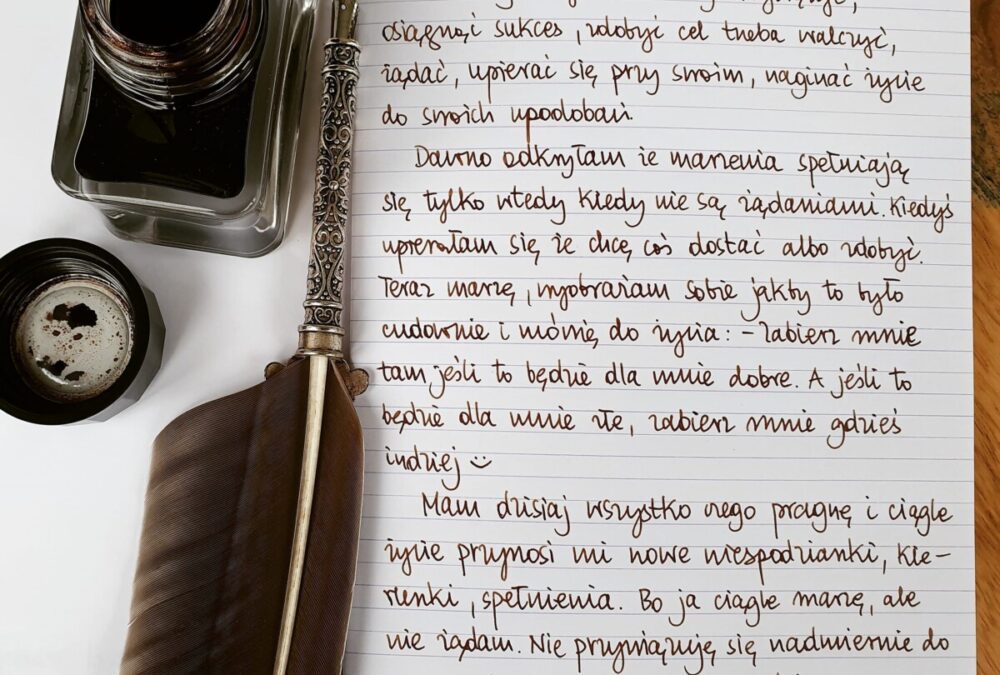 osiągnąć sukces, zdobyć cel trzeba walczyć,
żądać, upierać się przy swoim, naginać życie
do swoich upodobań.
Dawno odkryłam że marzenia spełniają
się tylko wtedy kiedy nie są żądaniami. Kiedyś
upierałam się że chcę coś dostać albo zdobyć.
Teraz marzę, wyobrażam sobie jakby to było
cudownie i mówię do życia: - Zabierz mnie
tam jeśli to będzie dla mnie dobre. A jeśli to
będzie dla mnie złe, zabierz mnie gdzieś
indziej :)
Mam dzisiaj wszystko czego pragnę i ciągle
życie przynosi mi nowe niespodzianki, kie-
runki, spełnienia. Bo ja ciągle marzę, ale
nie żądam. Nie przywiązuję się nadmiernie do